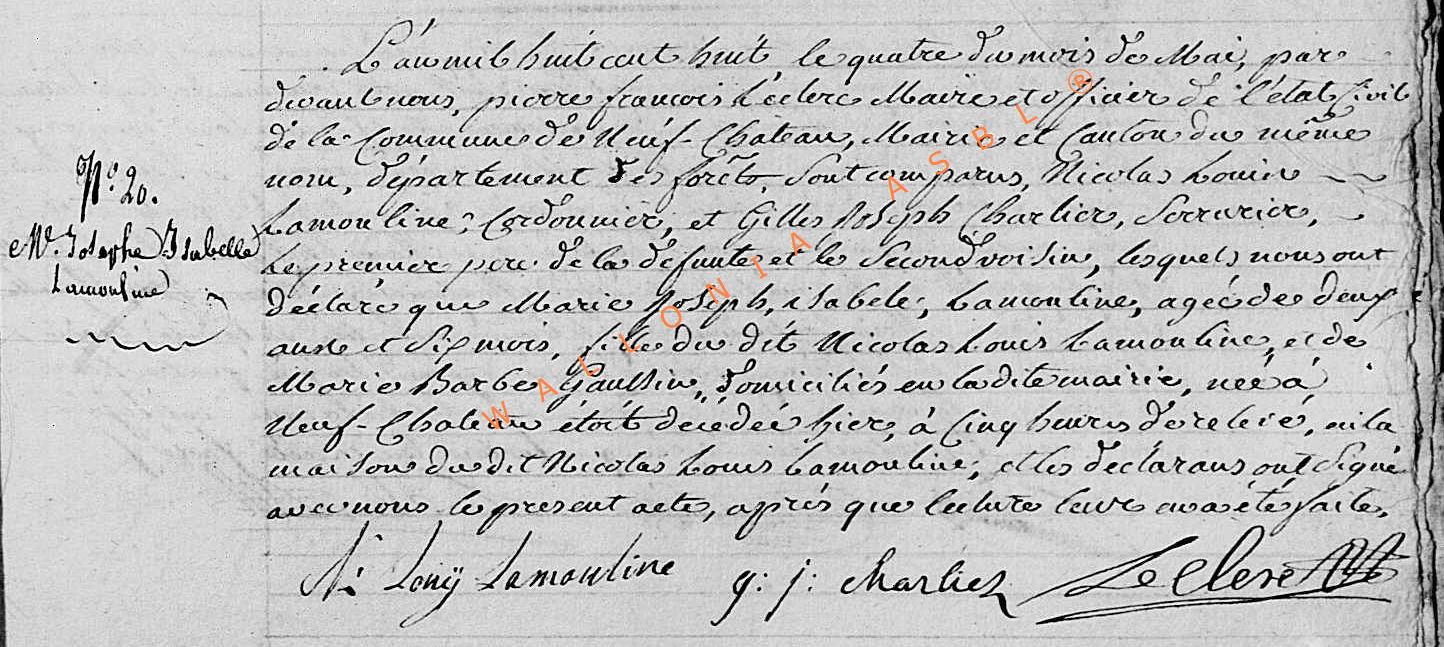 L'an mil huit cent huit le quatre du mois de Mai, par
devant nous, pierre francois Leclerc Maire et officier de l'état Civil
de la Commune de Neuf-Château, Mairie et Canton du même
nom, département des forêts, sont comparus, Nicolas Louis
Lamouline, Cordonnier, et Gilles Joseph Charlier, Serrurier,
Le premier pere de la défunte et le Second voisin, lesquels nous ont
déclaré que Marie Joseph, isabele, Lamouline, agée de deux
ans et Six mois, fille du dit Nicolas Louis Lamouline, et de
Marie Barbe Gaussin, domiciliés en la dite mairie, neé à
Neuf-Chateau étoit décédée hier, à Cinq heures de relevé, en la
maison du dit Nicolas Louis Lamouline, et les déclarans ont Signé
avec nous le present acte, après que lecture leur en a été faite.
N: Louÿ Lamouline g: j: charliez LeClerc
N.º 20.
M.ie Josephe Isabelle
Lamouline
WALLONIA ASBL®